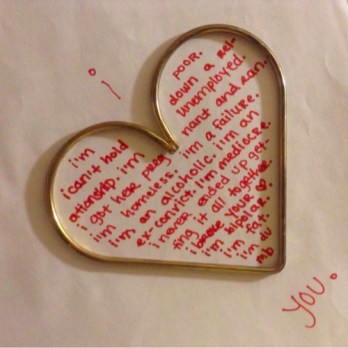 i
i'm poor.
i can't hold down a rel-
ationship. i'm unemployed.
i got her preg nant and ran.
i'm homeless. i'm a failure.
i'm an alcoholic. i'm an
ex-convict. i'm mediocre.
i never ended up get-
ting it all together.
i broke your ♥.
i'm bipolar.
i'm fat.
i'm
you.